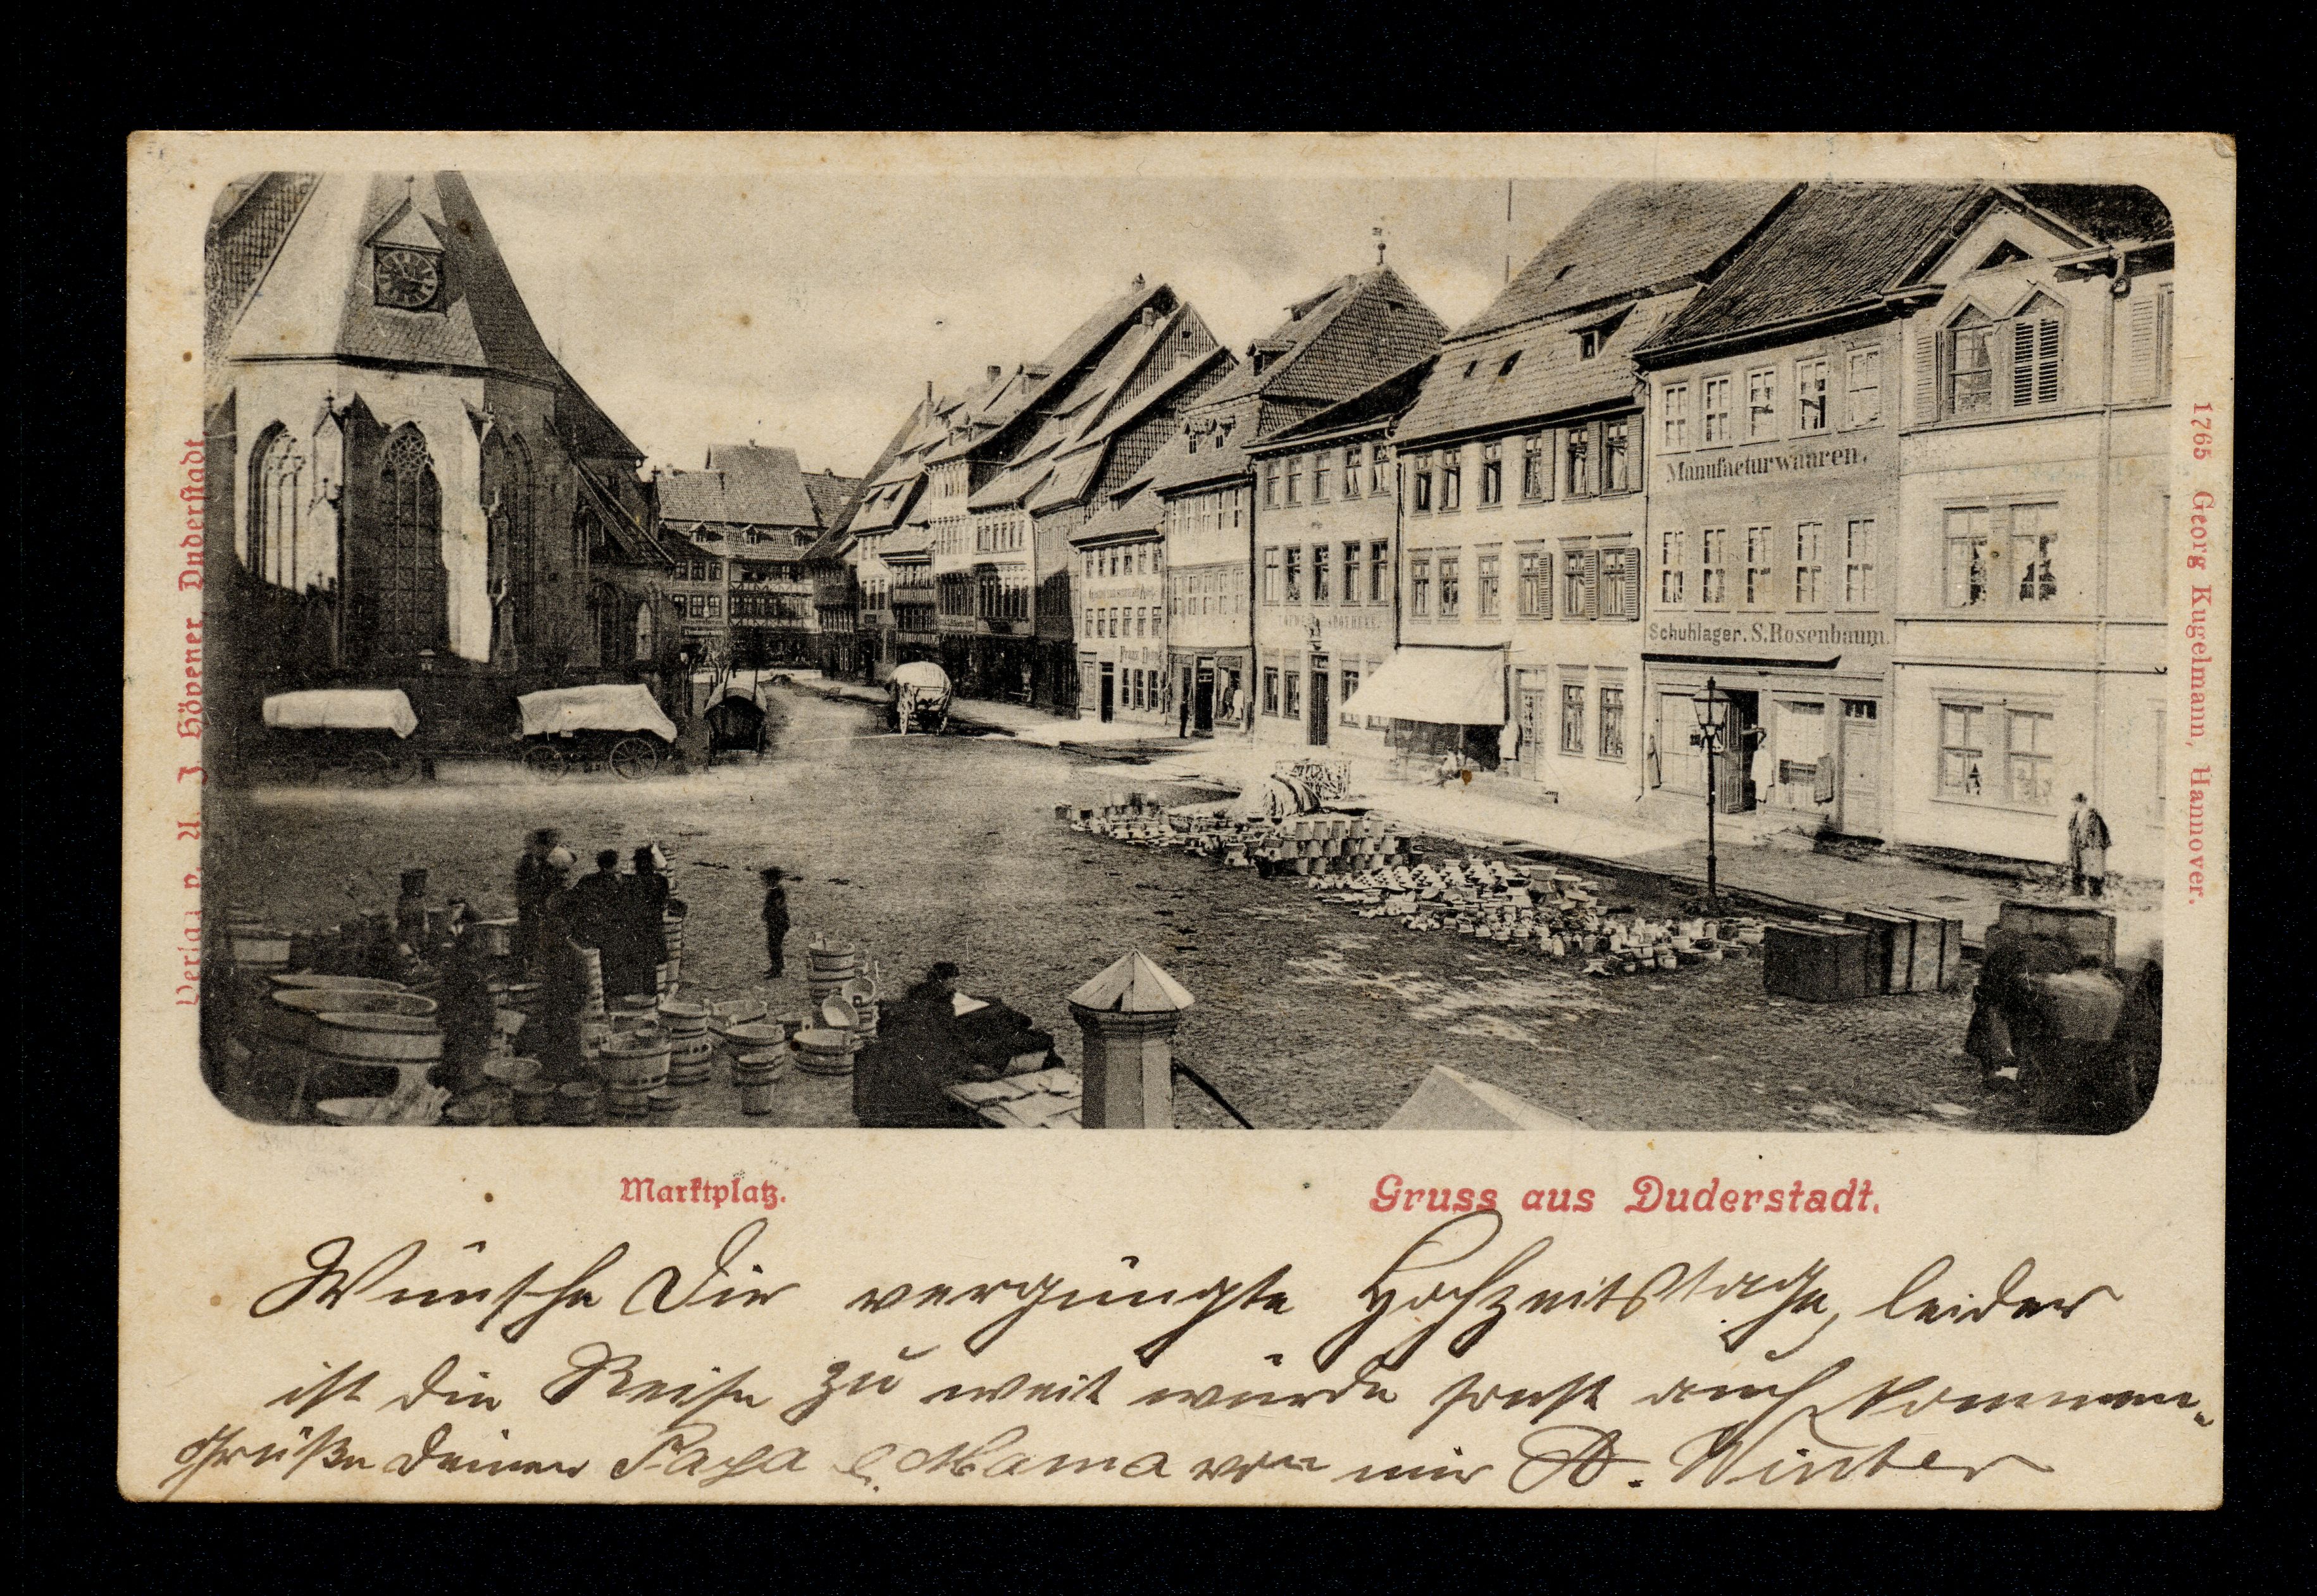 Manufacturwaaren.
Schuhlager. S. Rosenbaum.
Verlag v. A. J. Hövener, Duderstadt.
1765 Georg Kugelmann, Hannover.
Marktplatz.
Gruss aus Duderstadt.
Wünsche Dir vergüngte Hochzeitstage, leider
ist die Reise zu weit würde sonst auch kommen.
Grüße deinen Papa & Mama von mir A. Winter